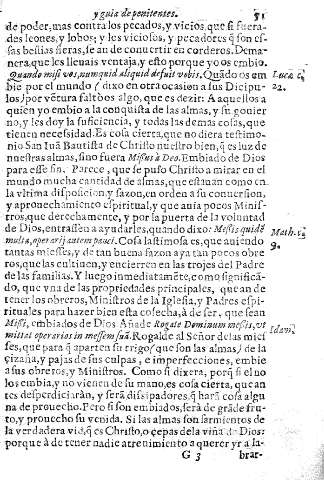 y guia de penitentes. 51
de poder, mas contra los pecados, y vicios, que si fuera-
des leones, y lobos; y les viciosos, y pecadores q̃ son es-
sas bestias fieras, se au de conuertir en corderos. Dema-
nera, que les lleuais ventaja, y esto porque yo os embio.
Quando misi vos, nunquid aliquid defuit vobis, Quãdo os em
bie por el mundo (dixo en otra ocasion a sus Dicipu-
los) por vẽtura faltòos algo, que es dezir: A aquellos a
quien yo embio a la conquista de las almas, y su gouier
no, y les doy la suficiencia, y todas las demas cosas, que
tienen necessidad. Es cosa cierta, que no diera testimo-
nio San Iuã Bautista de Christo nuestro bien, q̃ es luz de
nuestras almas, sino fuera Missus à Deo. Embiado de Dios
para esse fin. Parece, que se puso Christo a mirar en el
mundo mucha cantidad de almas, que estauan como en
la vltima disposicion, y sazon, en orden a su conuersion,
y aprouechamiento espiritual, y que auia pocos Minis-
tros, que derechamente, y por la puerta de la voluntad
de Dios, entrassen a ayudarles, quando dixo: Messis quidẽ
multa, operarij autem pauci. Cosa lastimosa es, que auiendo
tantas miesses, y de tan buena sazon aya tan pocos obre
ros, que las cultiuen, y encierren en las trojes del Padre
de las familias. Y luego inmediatamẽte, como significã-
do, que vna de las propiedades principales, que an de
tener los obreros, Ministros de la Iglesia, y Padres espi-
rituales para hazer bien esta cosecha, à de ser, que sean
Missi, embiados de Dios Añade Rogate Dominum messis, vt
mittat operarios in messem suã. Rogalde al Señor de las mies
ses, que para q̃ aparten su trigo (que son las almas) de la
çizaña, y pajas de sus culpas, e imperfecciones, embie
a sus obreros, y Ministros. Como si dixera, porq̃ si el no
los embia, y no vienen de su mano, es cosa cierta, que an
tes desperdiciaràn, y serà dissipadores, q̃ harã cosa algu
na de prouecho. Pero si son embiados, serà de grãde fru-
to, y prouecho su venida. Si las almas son sarmientos de
la verdadera vid, q̃ es Christo, o cepas de la viña de Dios:
porque à de tener nadie atreuimiento a querer yr a la-
G 3 brar-
Luca c,
22.
Math.
9,
Idem